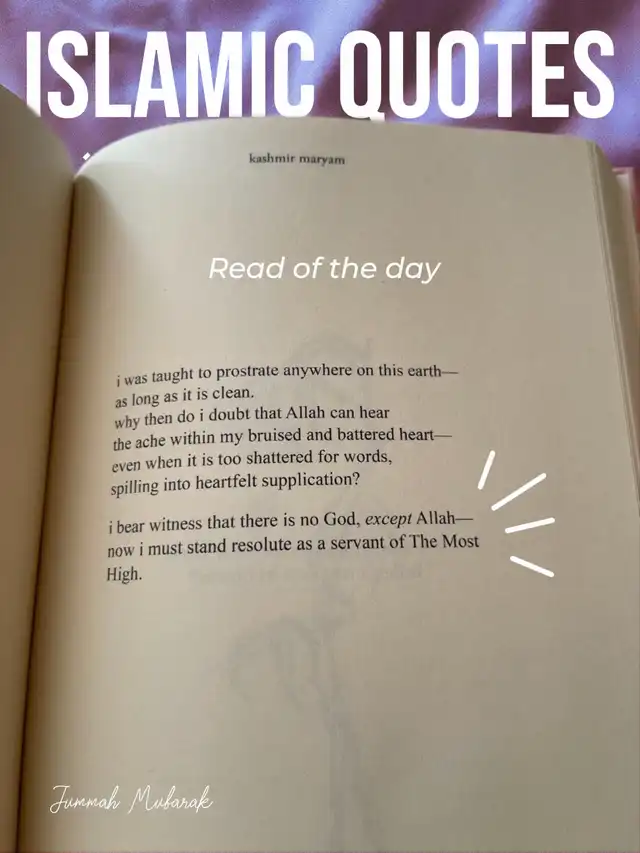 ISLAMIC QUOTES
kashmir maryam
Read of the day
i was taught to prostrate anywhere on this earth—
as long as it is clean.
why then do i doubt that Allah can hear
the ache within my bruised and battered heart—
even when it is too shattered for words,
spilling into heartfelt supplication?
i bear witness that there is no God, except Allah—
now i must stand resolute as a servant of The Most
High.
Jummah Mubarak